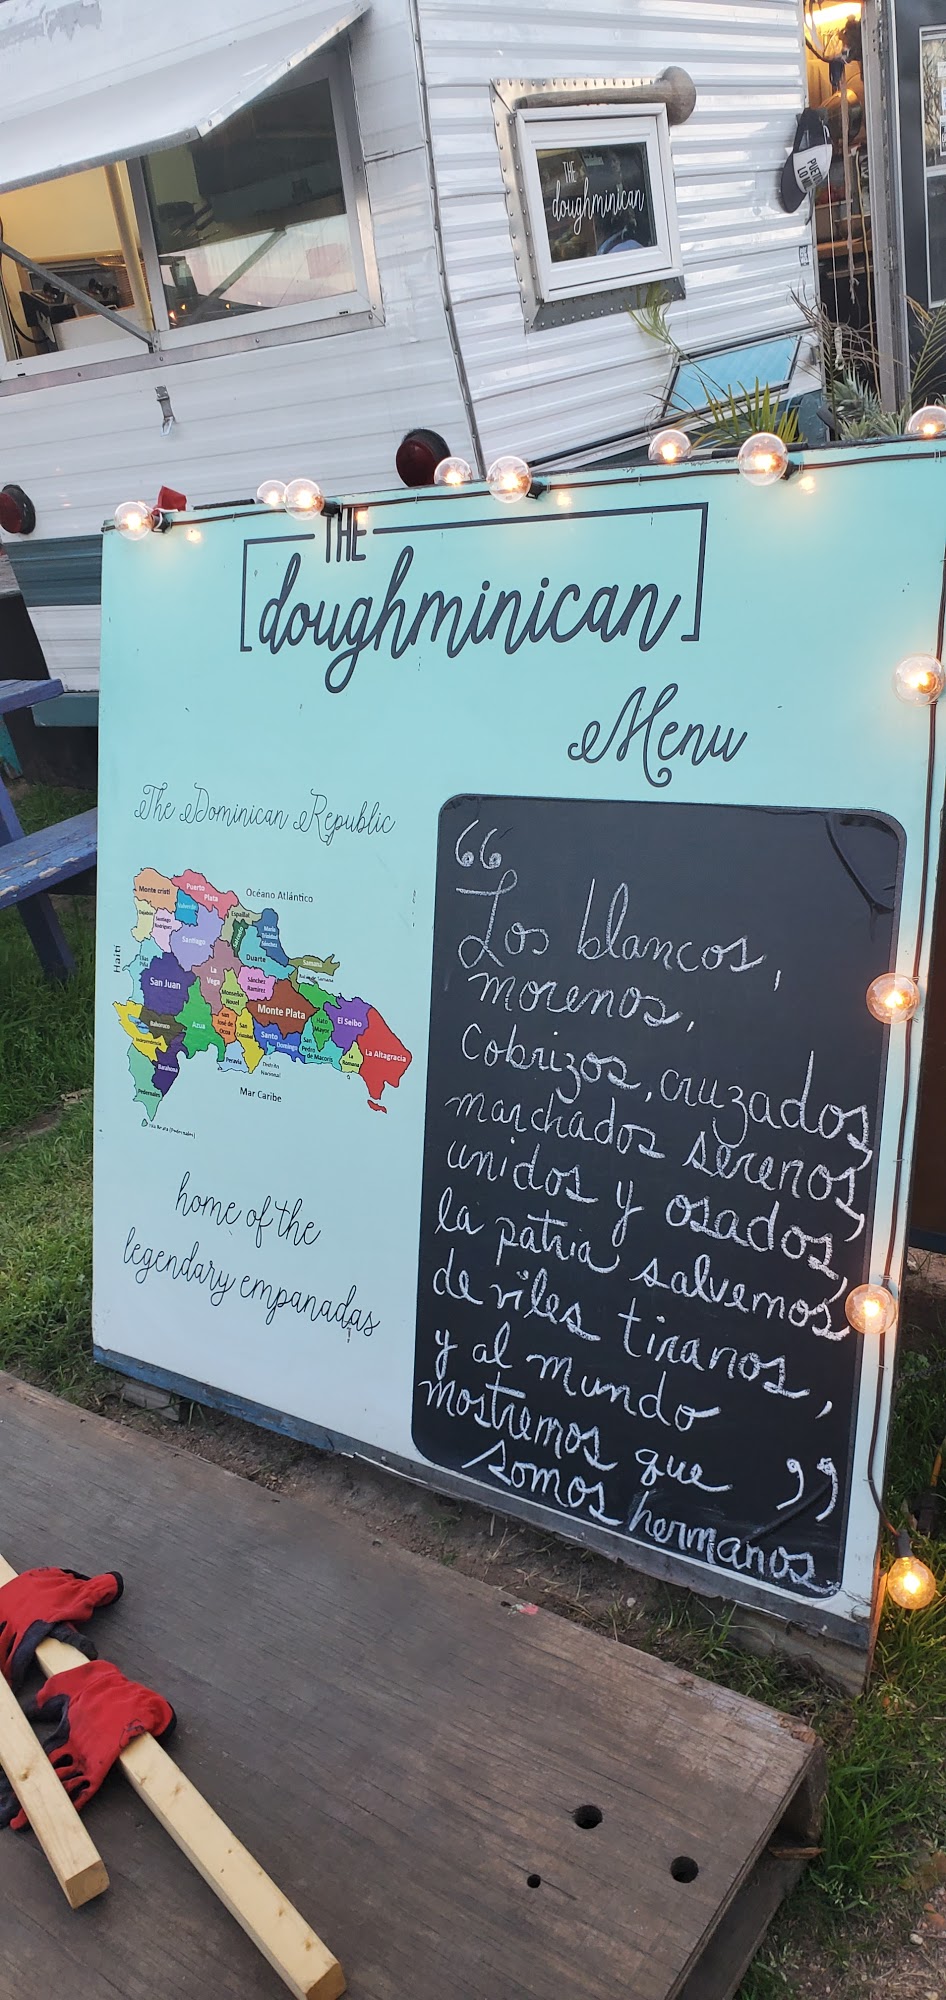 THE
doughminican
PUE
LO MI
THE
doughminican
Menu
The Dominican Republic
Océano Atlántico
Monte cristi
Puerto
Plata
Espaillat
Valverde
Dajabón
Santiago
Rodríguez
Santiago
María
Trinidad
Sánchez
Duarte
Samaná
Haití
Elías
Piña
San Juan
La
Vega
Sánchez
Ramírez
Monseñor
Nouel
Monte Plata
Hato
Mayor
El Seibo
La Altagracia
Bahoruco
Independencia
Azua
San
José de
Ocoa
San
Cristóbal
Santo
Domingo
San
Pedro
de Macorís
La
Romana
Barahona
Peravia
Distrito
Nacional
Pedernales
Mar Caribe
Isla Beata (Pedernales)
home of the
legendary empanadas
“
Los blancos,
morenos,
Cobrizos, cruzados
marchados serenos,
unidos y osados,
la patria salvemos
de viles tiranos,
y al mundo
mostremos que
somos hermanos. ”